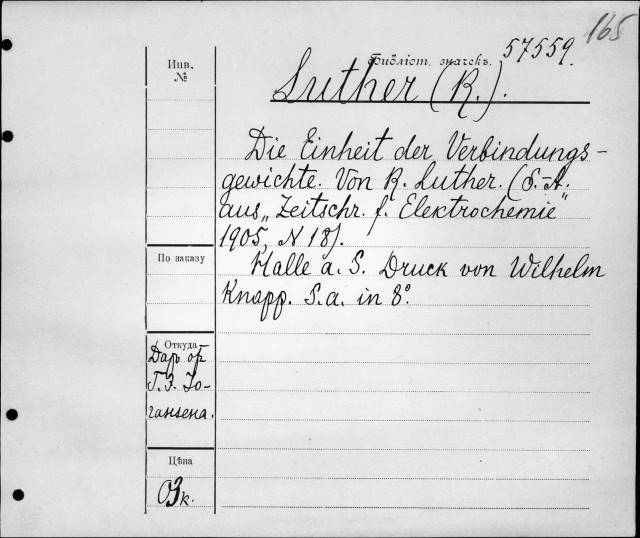 165
57559.
Инв.
№
Библіот. значекъ.
Luther (R.).
Die Einheit der Verbindungs-
gewichte. Von R. Luther. (S.-A.
aus „Zeitschr. f. Elektrochemie"
1905, N 18).
Halle a. S. Druck von Wilhelm
Knapp. S. a. in 8°.
По заказу
Откуда
Даръ от
Г. Э. Іо-
гансена.
Цѣна
03 к.